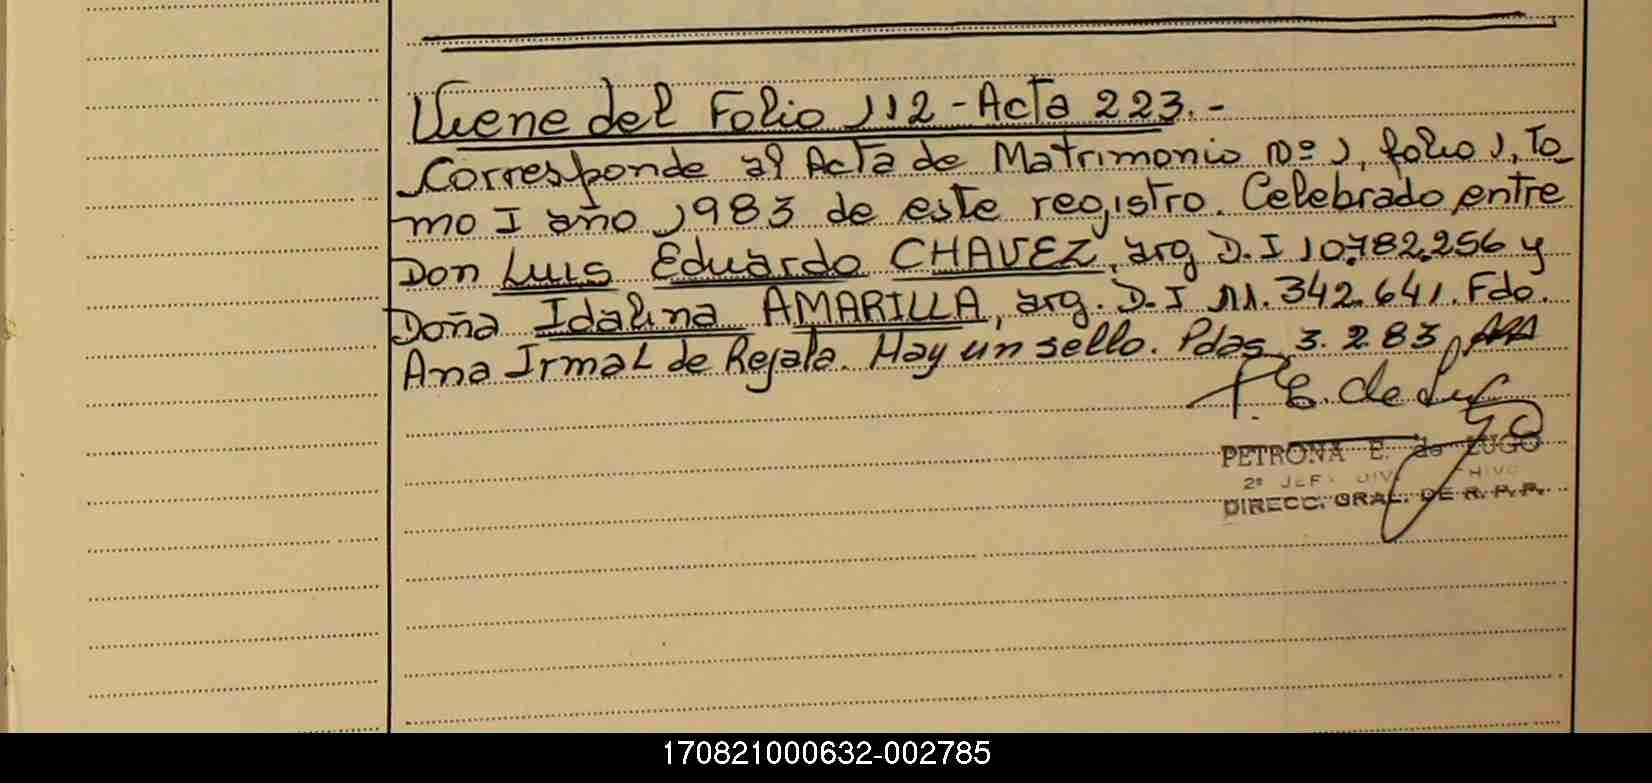 Viene del Folio 112 - Acta 223. -
Corresponde al Acta de Matrimonio Nº 1, folio 1, To
mo I año 1983 de este registro. Celebrado entre
Don Luis Eduardo CHAVEZ, arg D.I 10.782.256 y
Doña Idalina AMARILLA, arg. D.I 11.342.641. Fdo.
Ana Irma L de Rejala. Hay un sello. Pdas 3.2.83
P. E. de Lugo
PETRONA E. de LUGO
2º JEF DIV. CHIVO
DIRECC. GRAL. DE R. P. P.
170821000632-002785